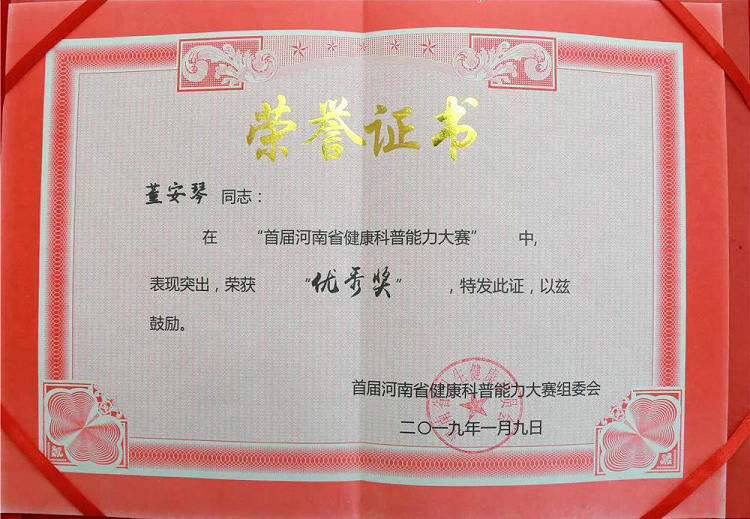 荣誉证书
董安琴 同志：
在 “首届河南省健康科普能力大赛” 中,
表现突出，荣获 “优秀奖” ，特发此证，以兹
鼓励。
首届河南省健康科普能力大赛组委会
二〇一九年一月九日